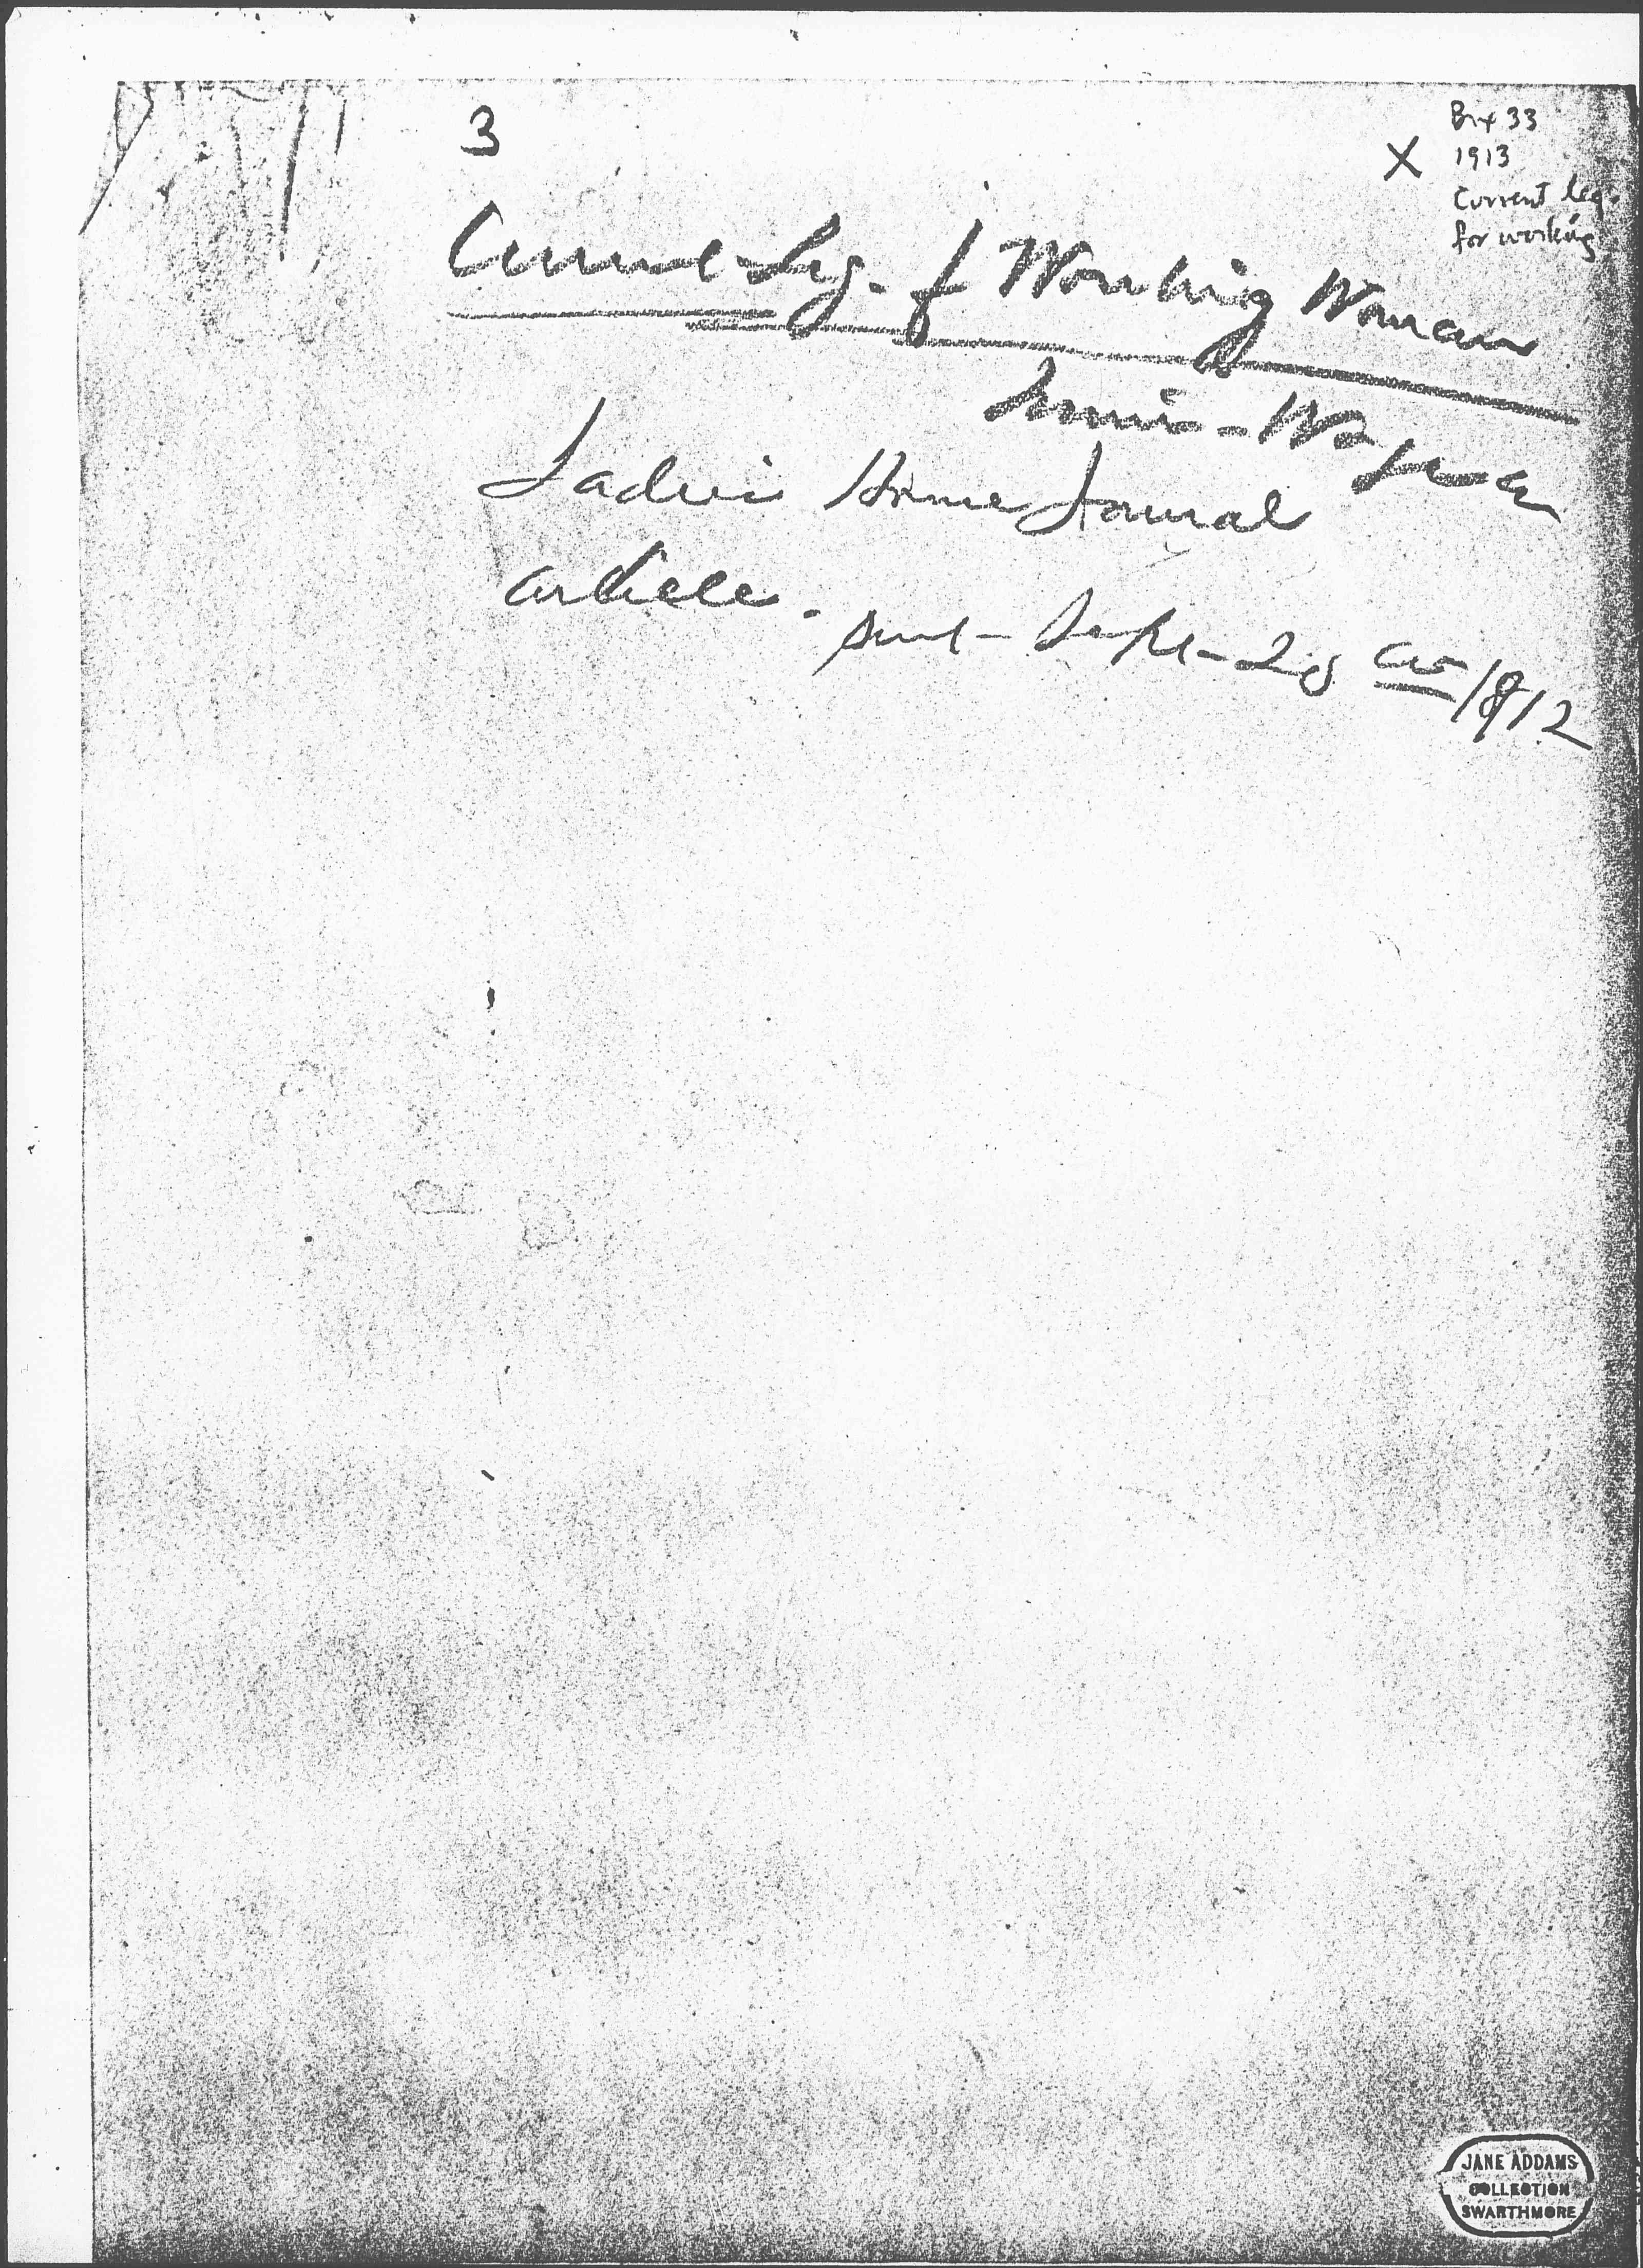 3
Bx 33
X 1913
Current Leg.
for working
Current Leg. f Working Woman
Ladies Home Journal
article.
sent - Sept - 28 1912
JANE ADDAMS
COLLECTION
SWARTHMORE